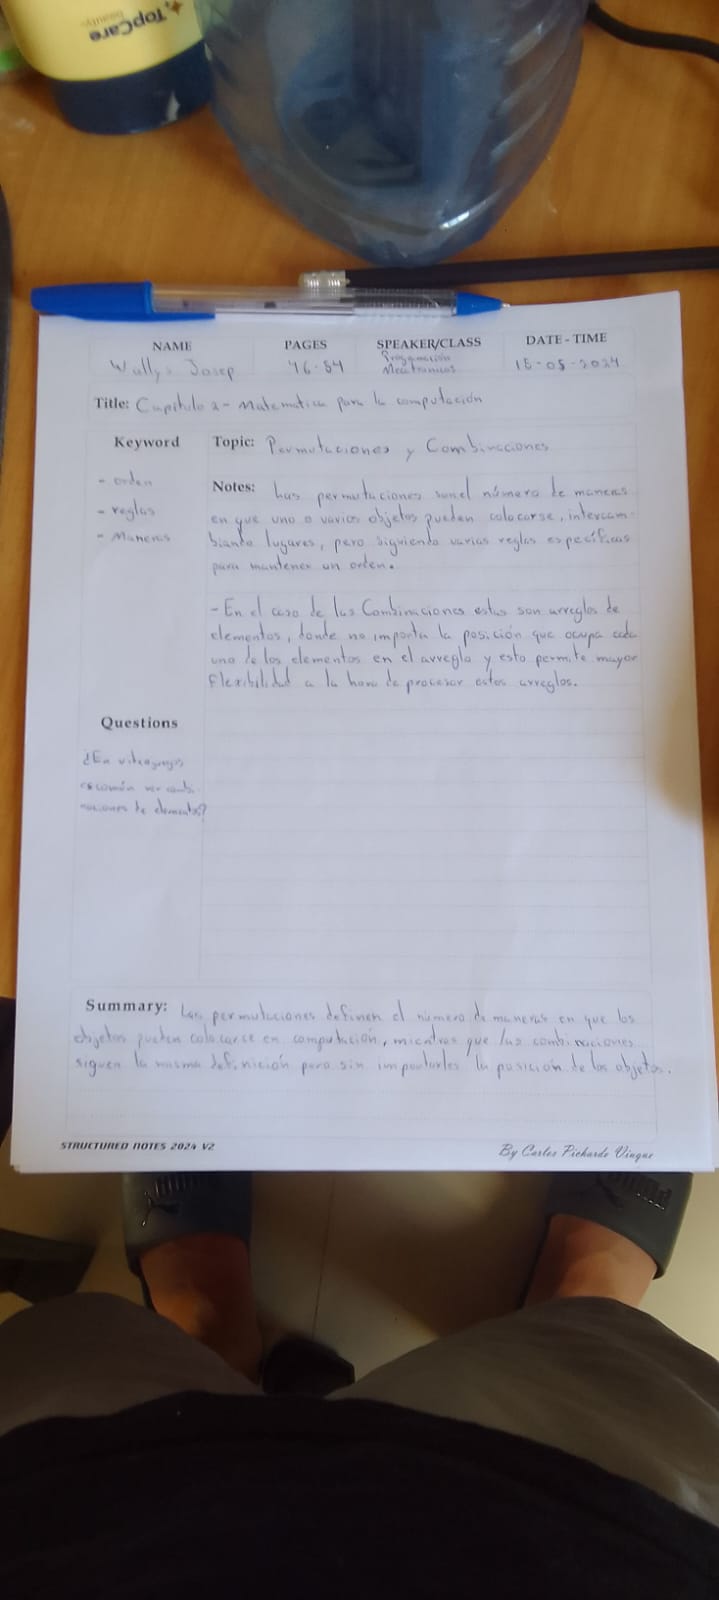 TopCare
beauty
NAME PAGES SPEAKER/CLASS DATE - TIME
Wally Josep 46-54 Programación Mecatronicos 15-05-2024
Title: Capitulo 2- Matematica para la computación
Keyword
- orden
- reglas
- Maneras
Topic: Permutaciones y Combinaciones
Notes: Las permutaciones son el número de maneras
en que uno o varios objetos pueden colocarse, intercam-
biando lugares, pero siguiendo varias reglas específicas
para mantener un orden.
- En el caso de las Combinaciones estas son arreglos de
elementos, donde no importa la posición que ocupa cada
uno de los elementos en el arreglo y esto permite mayor
flexibilidad a la hora de procesar estos arreglos.
Questions
¿En videojuegos
es común ver combi-
naciones de elementos?
Summary: Las permutaciones definen el número de maneras en que los
objetos pueden colocarse en computación, mientras que las combinaciones
siguen la misma definición pero sin importarles la posición de los objetos.
STRUCTURED NOTES 2024 V2
By Carlos Pichardo Vinque
PUMA